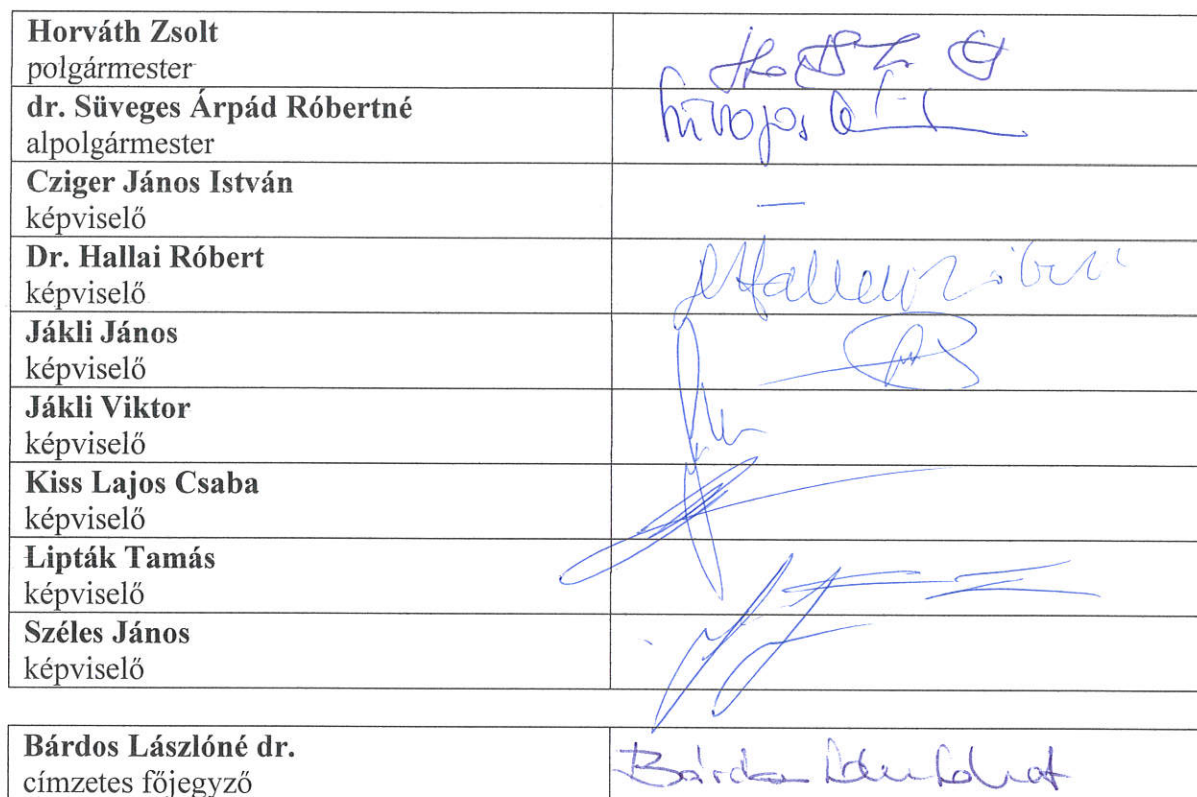 Horváth Zsolt
polgármester
dr. Süveges Árpád Róbertné
alpolgármester
Cziger János István
képviselő
—
Dr. Hallai Róbert
képviselő
Jákli János
képviselő
Jákli Viktor
képviselő
Kiss Lajos Csaba
képviselő
Lipták Tamás
képviselő
Széles János
képviselő
Bárdos Lászlóné dr.
címzetes főjegyző